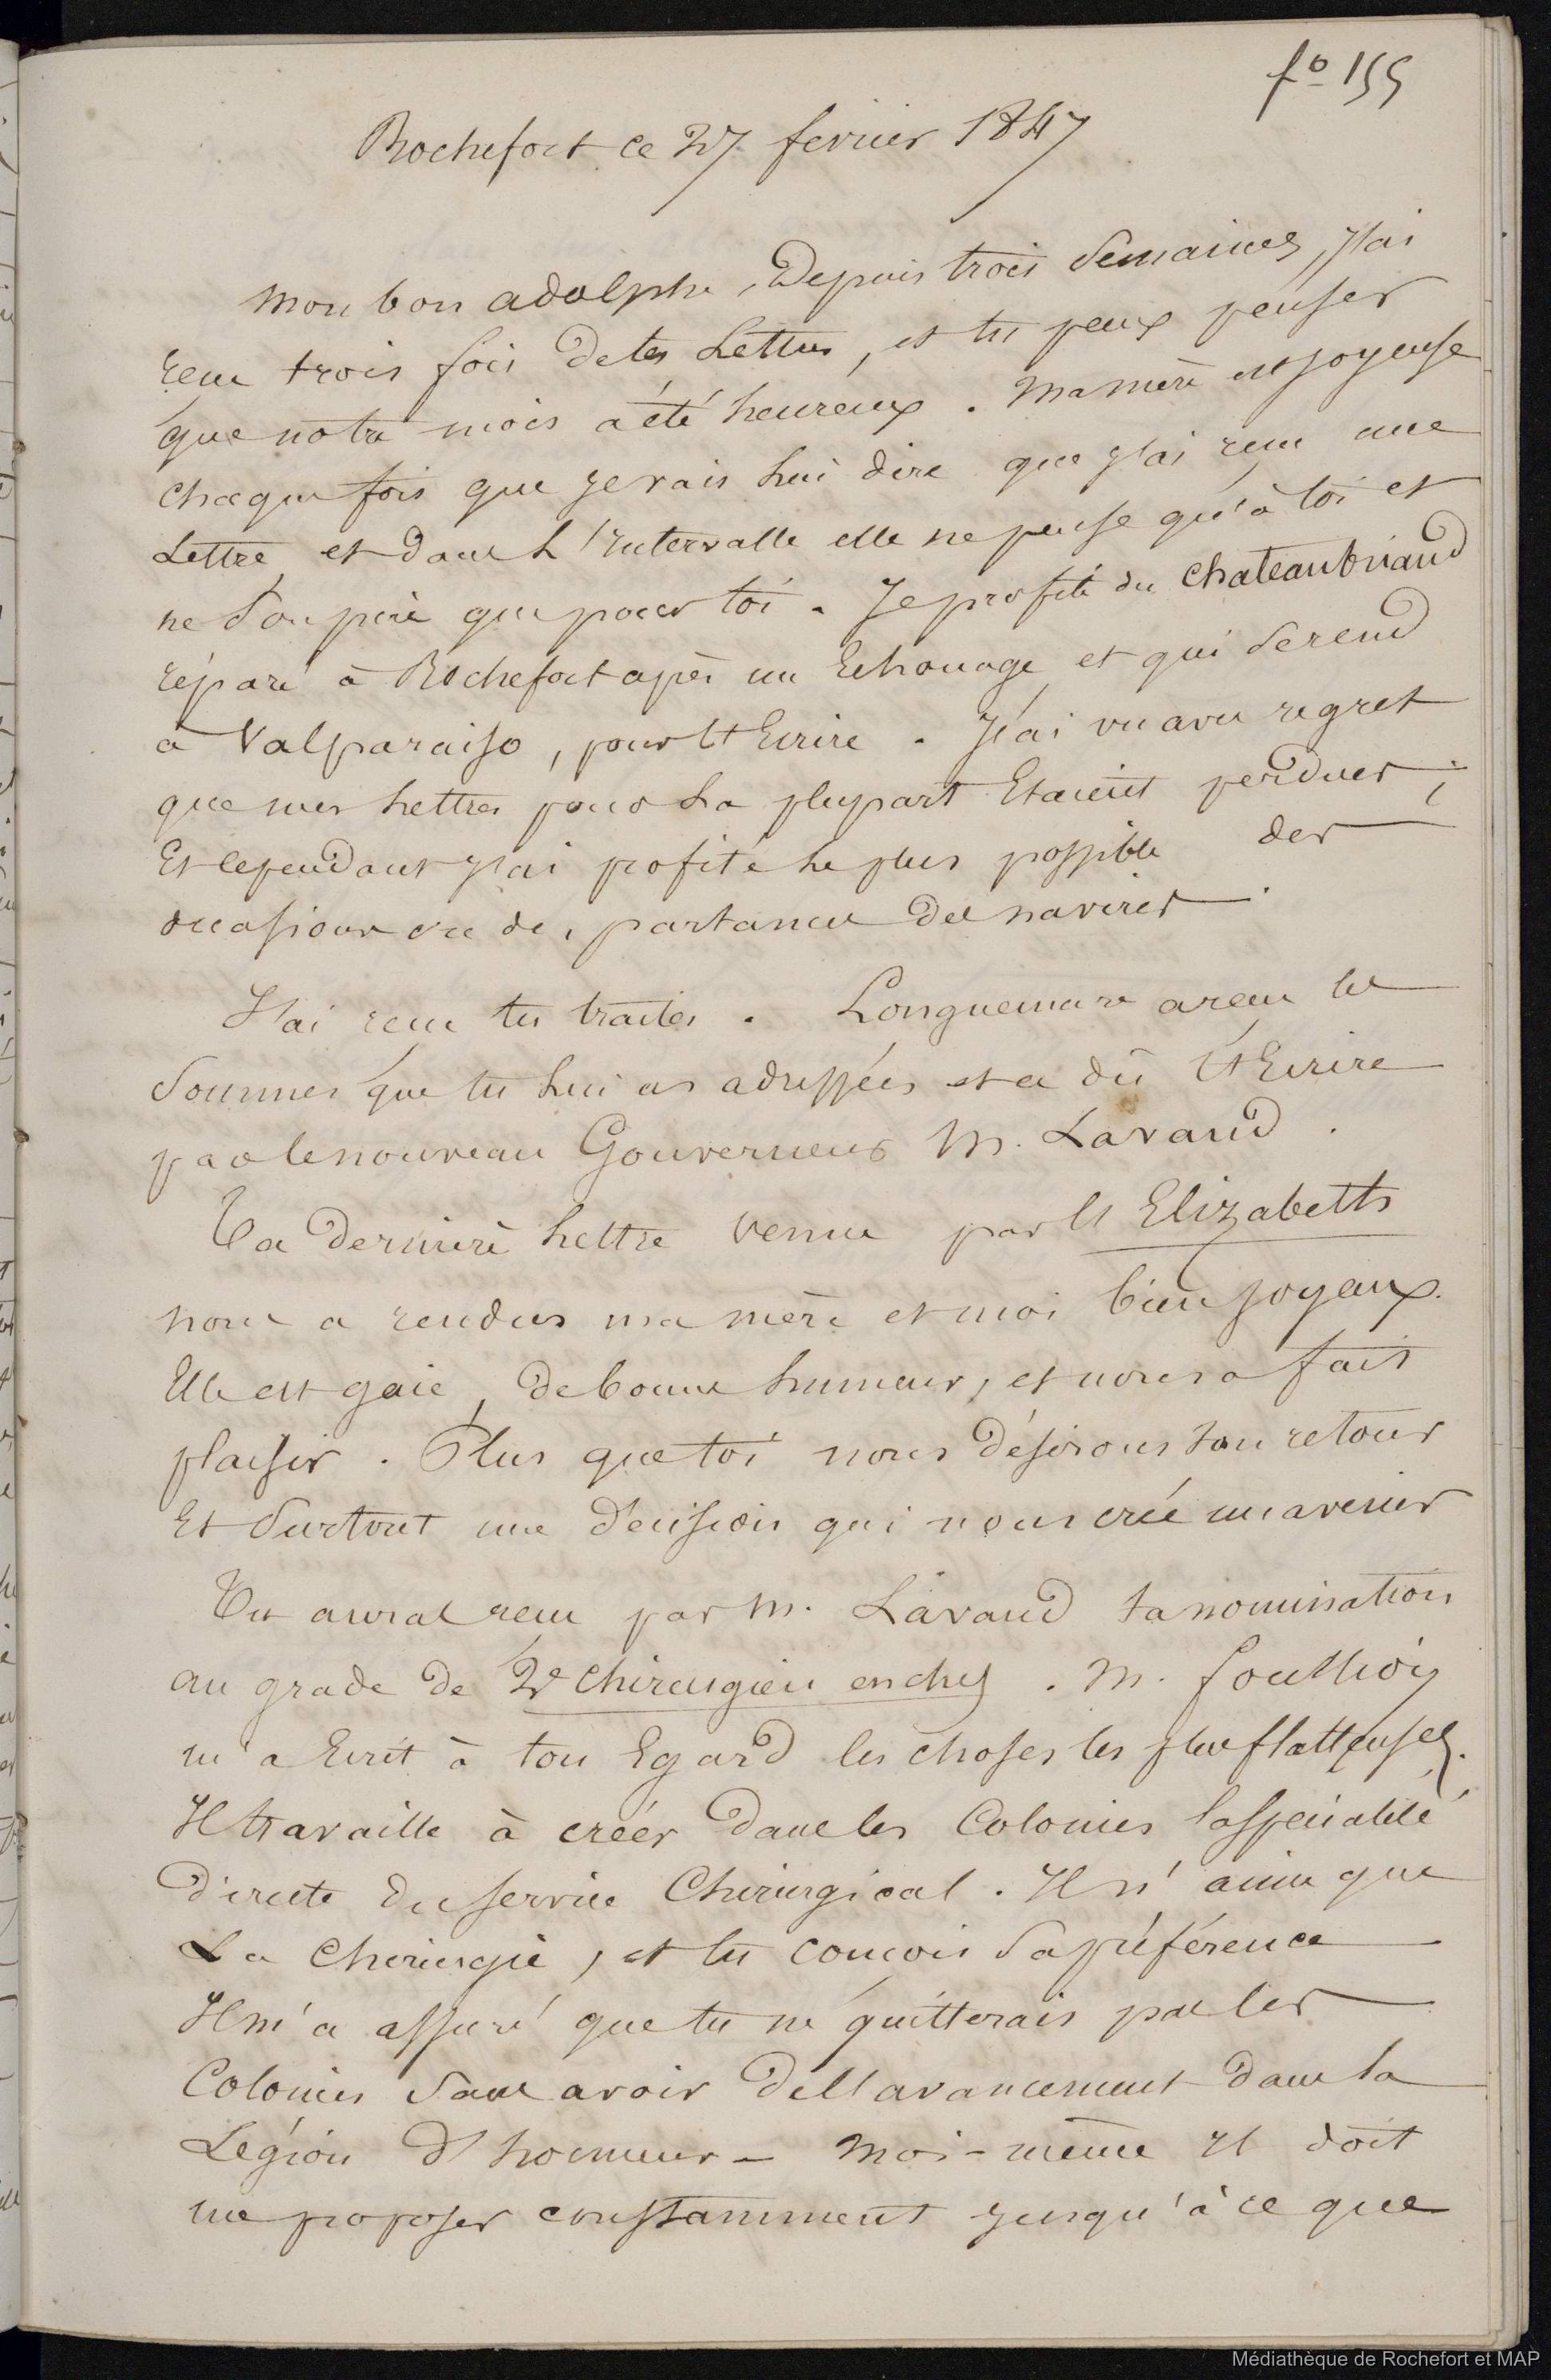 fo 155
Rochefort ce 27 fevrier 1847
mon bon adolphe, Depuis trois Semaines, j'ai
recu trois fois de tes Lettres, et tu peux penser
que notre mois a été heureux. Ma mère est joyeuse
chaque fois que je vais lui dire que j'ai recu une
Lettre et dans l'intervalle elle ne pense qu'à toi et
ne Soupire que pour toi. Je profite du Chateaubriand
réparé à Rochefort après un Echouage et qui Se rend
à Valparaiso, pour t'Ecrire. J'ai vu avec regret
que mes lettres pour la plupart Etaient perdues ;
Et cependant j'ai profité le plus possible des
occasions de partance des navires.
J'ai recu tes traites. Longuemare a recu les
Sommes que tu lui as adressées et a dû t'Ecrire
par le nouveau Gouverneur M. Lavaud.
Ta dernière lettre venue par l'Elizabeth
nous a rendus ma mère et moi bien joyeux.
Elle est gaie, de bonne humeur, et nous a fait
plaisir. Plus que toi nous désirons ton retour
Et Surtout une décision qui nous crée un avenir
Tu auras recu par M. Lavaud ta nomination
au grade de 2e Chirurgien en chef. M. foullioy
m'a Ecrit à ton Egard les choses les plus flatteuses.
Il travaille à créer dans les Colonies la spécialité
directe du service Chirurgical. Il n'aime que
La Chirurgie, et tu concois Sa préférence
Il m'a assuré que tu ne quitterais pas les
Colonies Sans avoir de l'avancement dans la
Légion d'honneur - Moi-même il doit
me proposer constamment jusqu'à ce que
Médiathèque de Rochefort et MAP